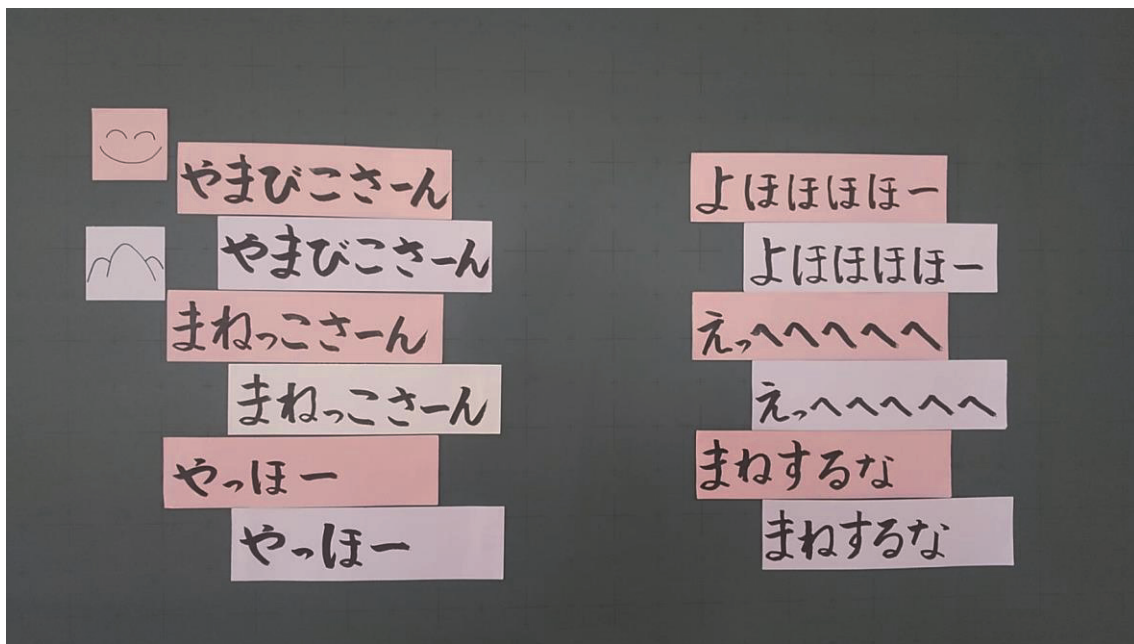 やまびこさーん
やまびこさーん
まねっこさーん
まねっこさーん
やっほー
やっほー
よほほほほー
よほほほほー
えっへへへへへ
えっへへへへへ
まねするな
まねするな